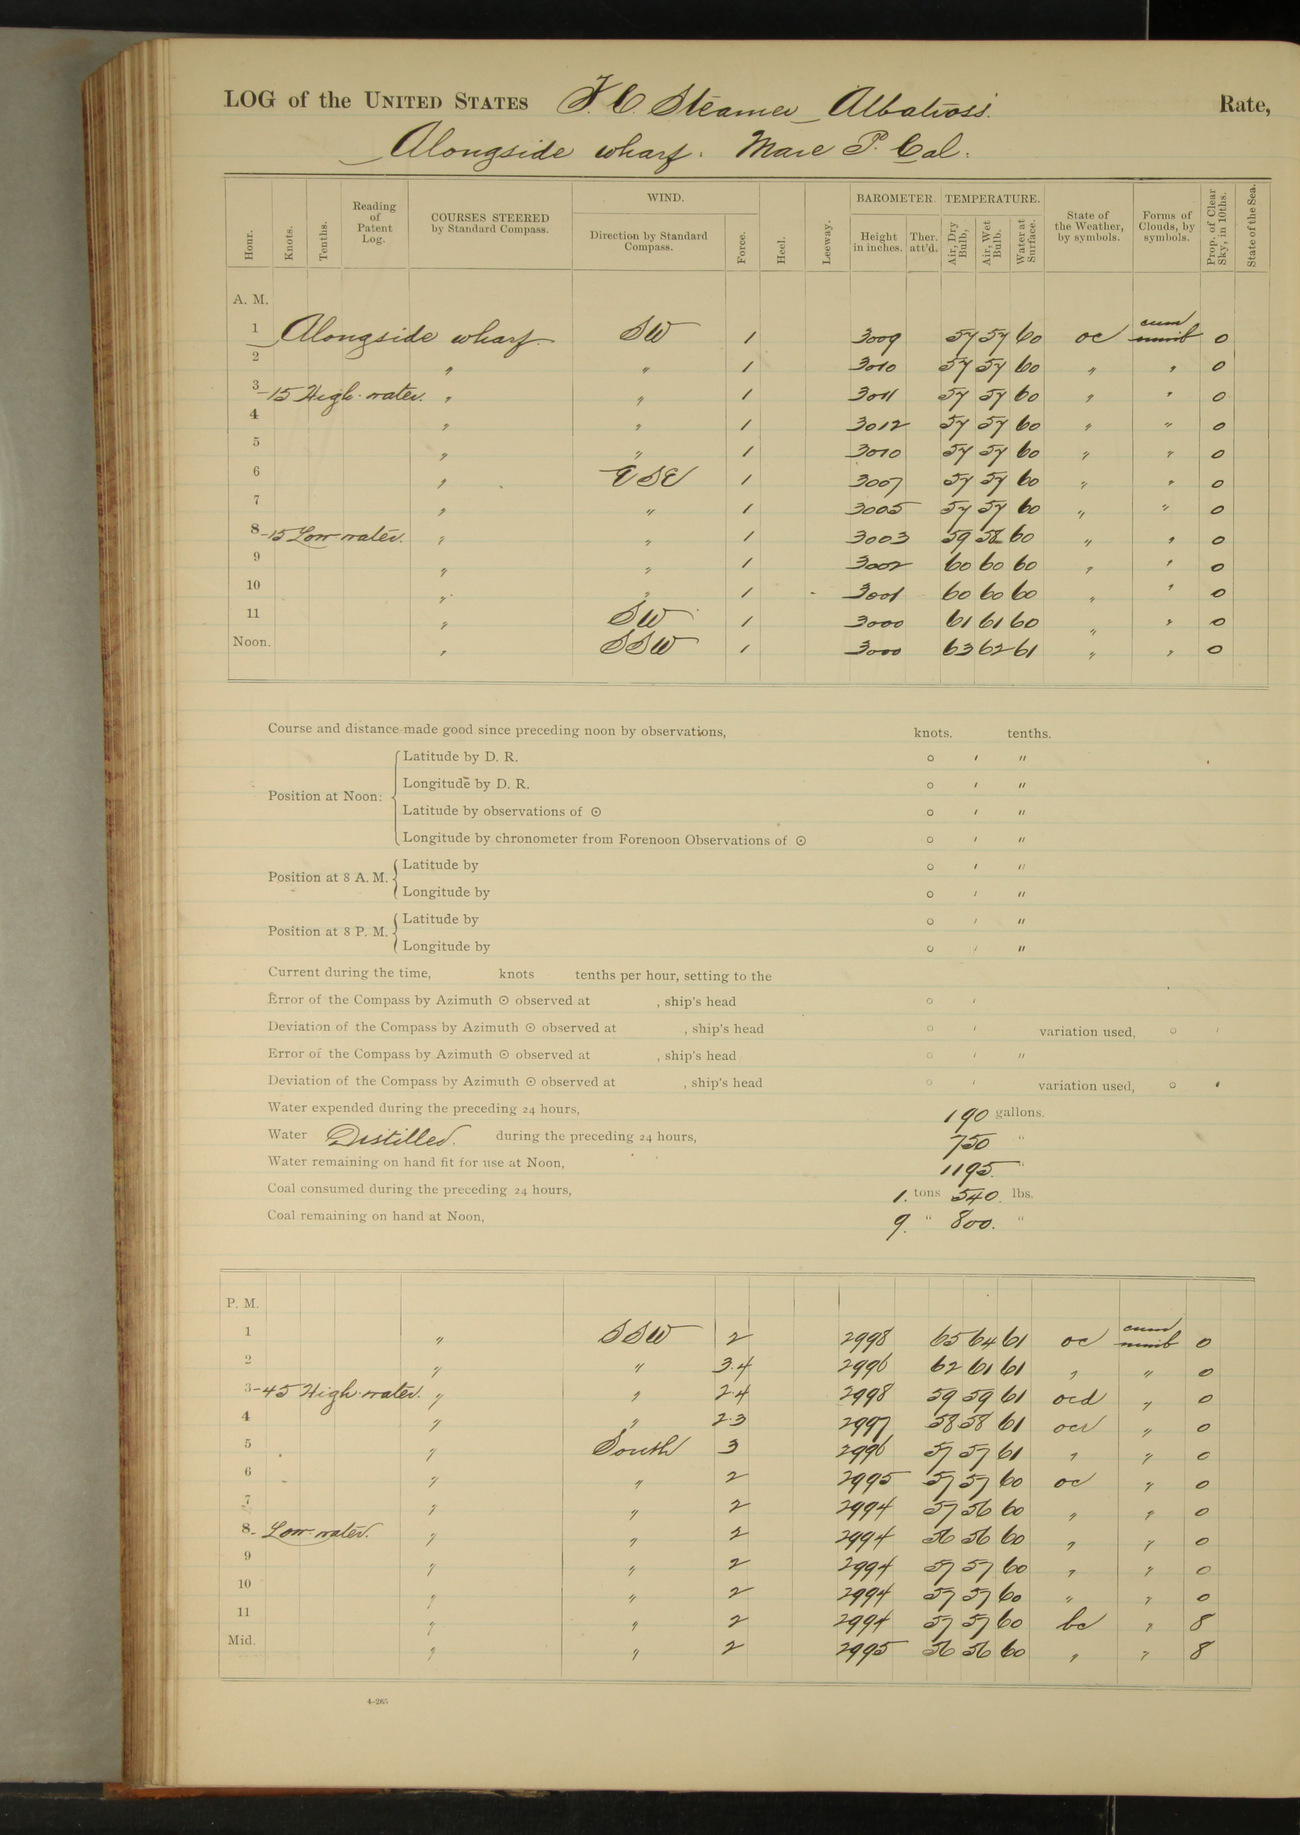 LOG of the UNITED STATES F. C. Steamer Albatross. Rate,
Alongside wharf. Mare I. Cal.
Hour. Knots. Tenths. Reading of Patent Log. COURSES STEERED by Standard Compass. WIND. Direction by Standard Compass. Force. Heel. Leeway. BAROMETER. Height in inches. Ther. att'd. TEMPERATURE. Air, Dry Bulb, Air, Wet Bulb. Water at Surface. State of the Weather, by symbols. Forms of Clouds, by symbols. Prop. of Clear Sky, in 10ths. State of the Sea.
A. M.
1 Alongside wharf. SW 1 3009 57 57 60 oc cum nimb 0
2 " " 1 3010 57 57 60 " " 0
3-15 High water. " " 1 3011 57 57 60 " " 0
4 " " 1 3012 57 57 60 " " 0
5 " " 1 3010 57 57 60 " " 0
6 " ESE 1 3007 57 57 60 " " 0
7 " " 1 3005 57 57 60 " " 0
8-15 Low water. " " 1 3003 59 58 60 " " 0
9 " " 1 3002 60 60 60 " " 0
10 " " 1 3001 60 60 60 " " 0
11 " SW 1 3000 61 61 60 " " 0
Noon. " SSW 1 3000 63 62 61 " " 0
Course and distance made good since preceding noon by observations, knots. tenths.
Position at Noon: Latitude by D. R. ° ′ ″
Longitude by D. R. ° ′ ″
Latitude by observations of ☉ ° ′ ″
Longitude by chronometer from Forenoon Observations of ☉ ° ′ ″
Position at 8 A. M. Latitude by ° ′ ″
Longitude by ° ′ ″
Position at 8 P. M. Latitude by ° ′ ″
Longitude by ° ′ ″
Current during the time, knots tenths per hour, setting to the
Error of the Compass by Azimuth ☉ observed at , ship's head ° ′
Deviation of the Compass by Azimuth ☉ observed at , ship's head ° ′ variation used, ° ′
Error of the Compass by Azimuth ☉ observed at , ship's head ° ′ ″
Deviation of the Compass by Azimuth ☉ observed at , ship's head ° ′ variation used, ° ′
Water expended during the preceding 24 hours, 190 gallons.
Water Distilled. during the preceding 24 hours, 750 "
Water remaining on hand fit for use at Noon, 1195 "
Coal consumed during the preceding 24 hours, 1. tons 540. lbs.
Coal remaining on hand at Noon, 9. " 800. "
P. M.
1 " SSW 2 2998 65 64 61 oc cum nimb 0
2 " " 3.4 2996 62 61 61 " " 0
3-45 High water. " " 2.4 2998 59 59 61 ocd " 0
4 " " 2.3 2997 58 58 61 ocr " 0
5 " South 3 2996 57 57 61 " " 0
6 " " 2 2995 57 57 60 oc " 0
7 " " 2 2994 57 56 60 " " 0
8- Low water. " " 2 2994 56 56 60 " " 0
9 " " 2 2994 57 57 60 " " 0
10 " " 2 2994 57 57 60 " " 0
11 " " 2 2994 57 57 60 bc " 8
Mid. " " 2 2995 56 56 60 " " 8
4-265